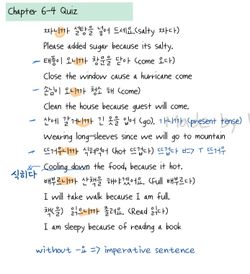 Chapter 6-4 Quiz
짜니까 설탕을 넣어 드세요 (salty 짜다)
Please added sugar because its salty.
태풍이 오니까 창문을 닫아 (come 오다)
Close the window cause a hurricane come
손님이 오니까 청소 해 (come)
Clean the house because guest will come.
산에 갈거니까 긴 옷을 입어 (go). 가니까 (present tense)
Wearing long-sleeves since we will go to mountain
뜨거우니까 식혀먹어 (hot 뜨겁다) 뜨겁다 ㅂ=> 우 뜨거우
식히다
Cooling down the food, because it hot.
배부르니까 산책을 해야겠어요. (Full 배부르다)
I will take walk because I am full.
책(을) 읽으니까 졸려요. (Read 읽다)
I am sleepy because of reading a book
without -요 => imperative sentence